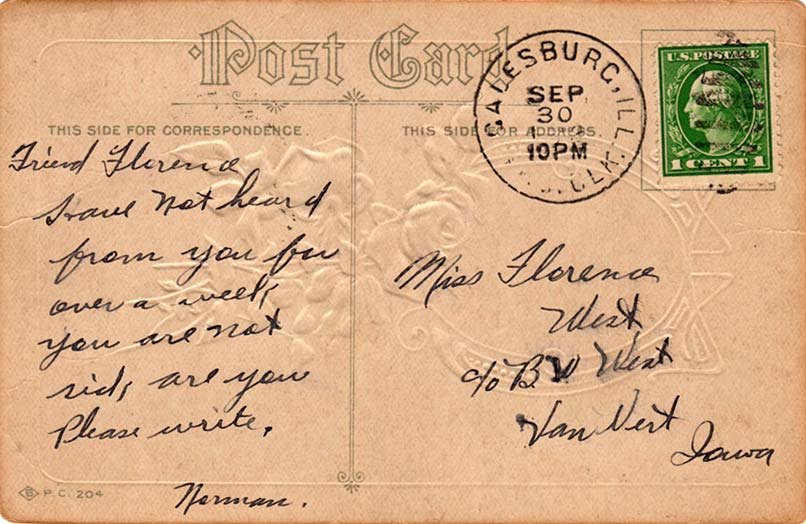 Post Card
THIS SIDE FOR CORRESPONDENCE.
THIS SIDE FOR ADDRESS.
GALESBURG, ILL.
SEP
30
10PM
CLK.
U.S. POSTAGE
1 CENT 1
Friend Florence
Have Not heard
from you for
over a week,
you are not
sick are you
Please write.
Norman.
Miss Florence
West
c/o B W West
Van Wert
Iowa
P.C. 204